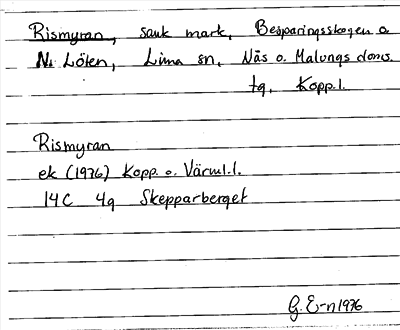 Rismyran, sank mark, Besparingsskogen o.
N. Löten, Lima sn, Näs o. Malungs doms.
tg, Kopp.l.
Rismyran
ek (1976) Kopp. o. Värml.l.
14C 4g Skepparberget
G. E-n 1976